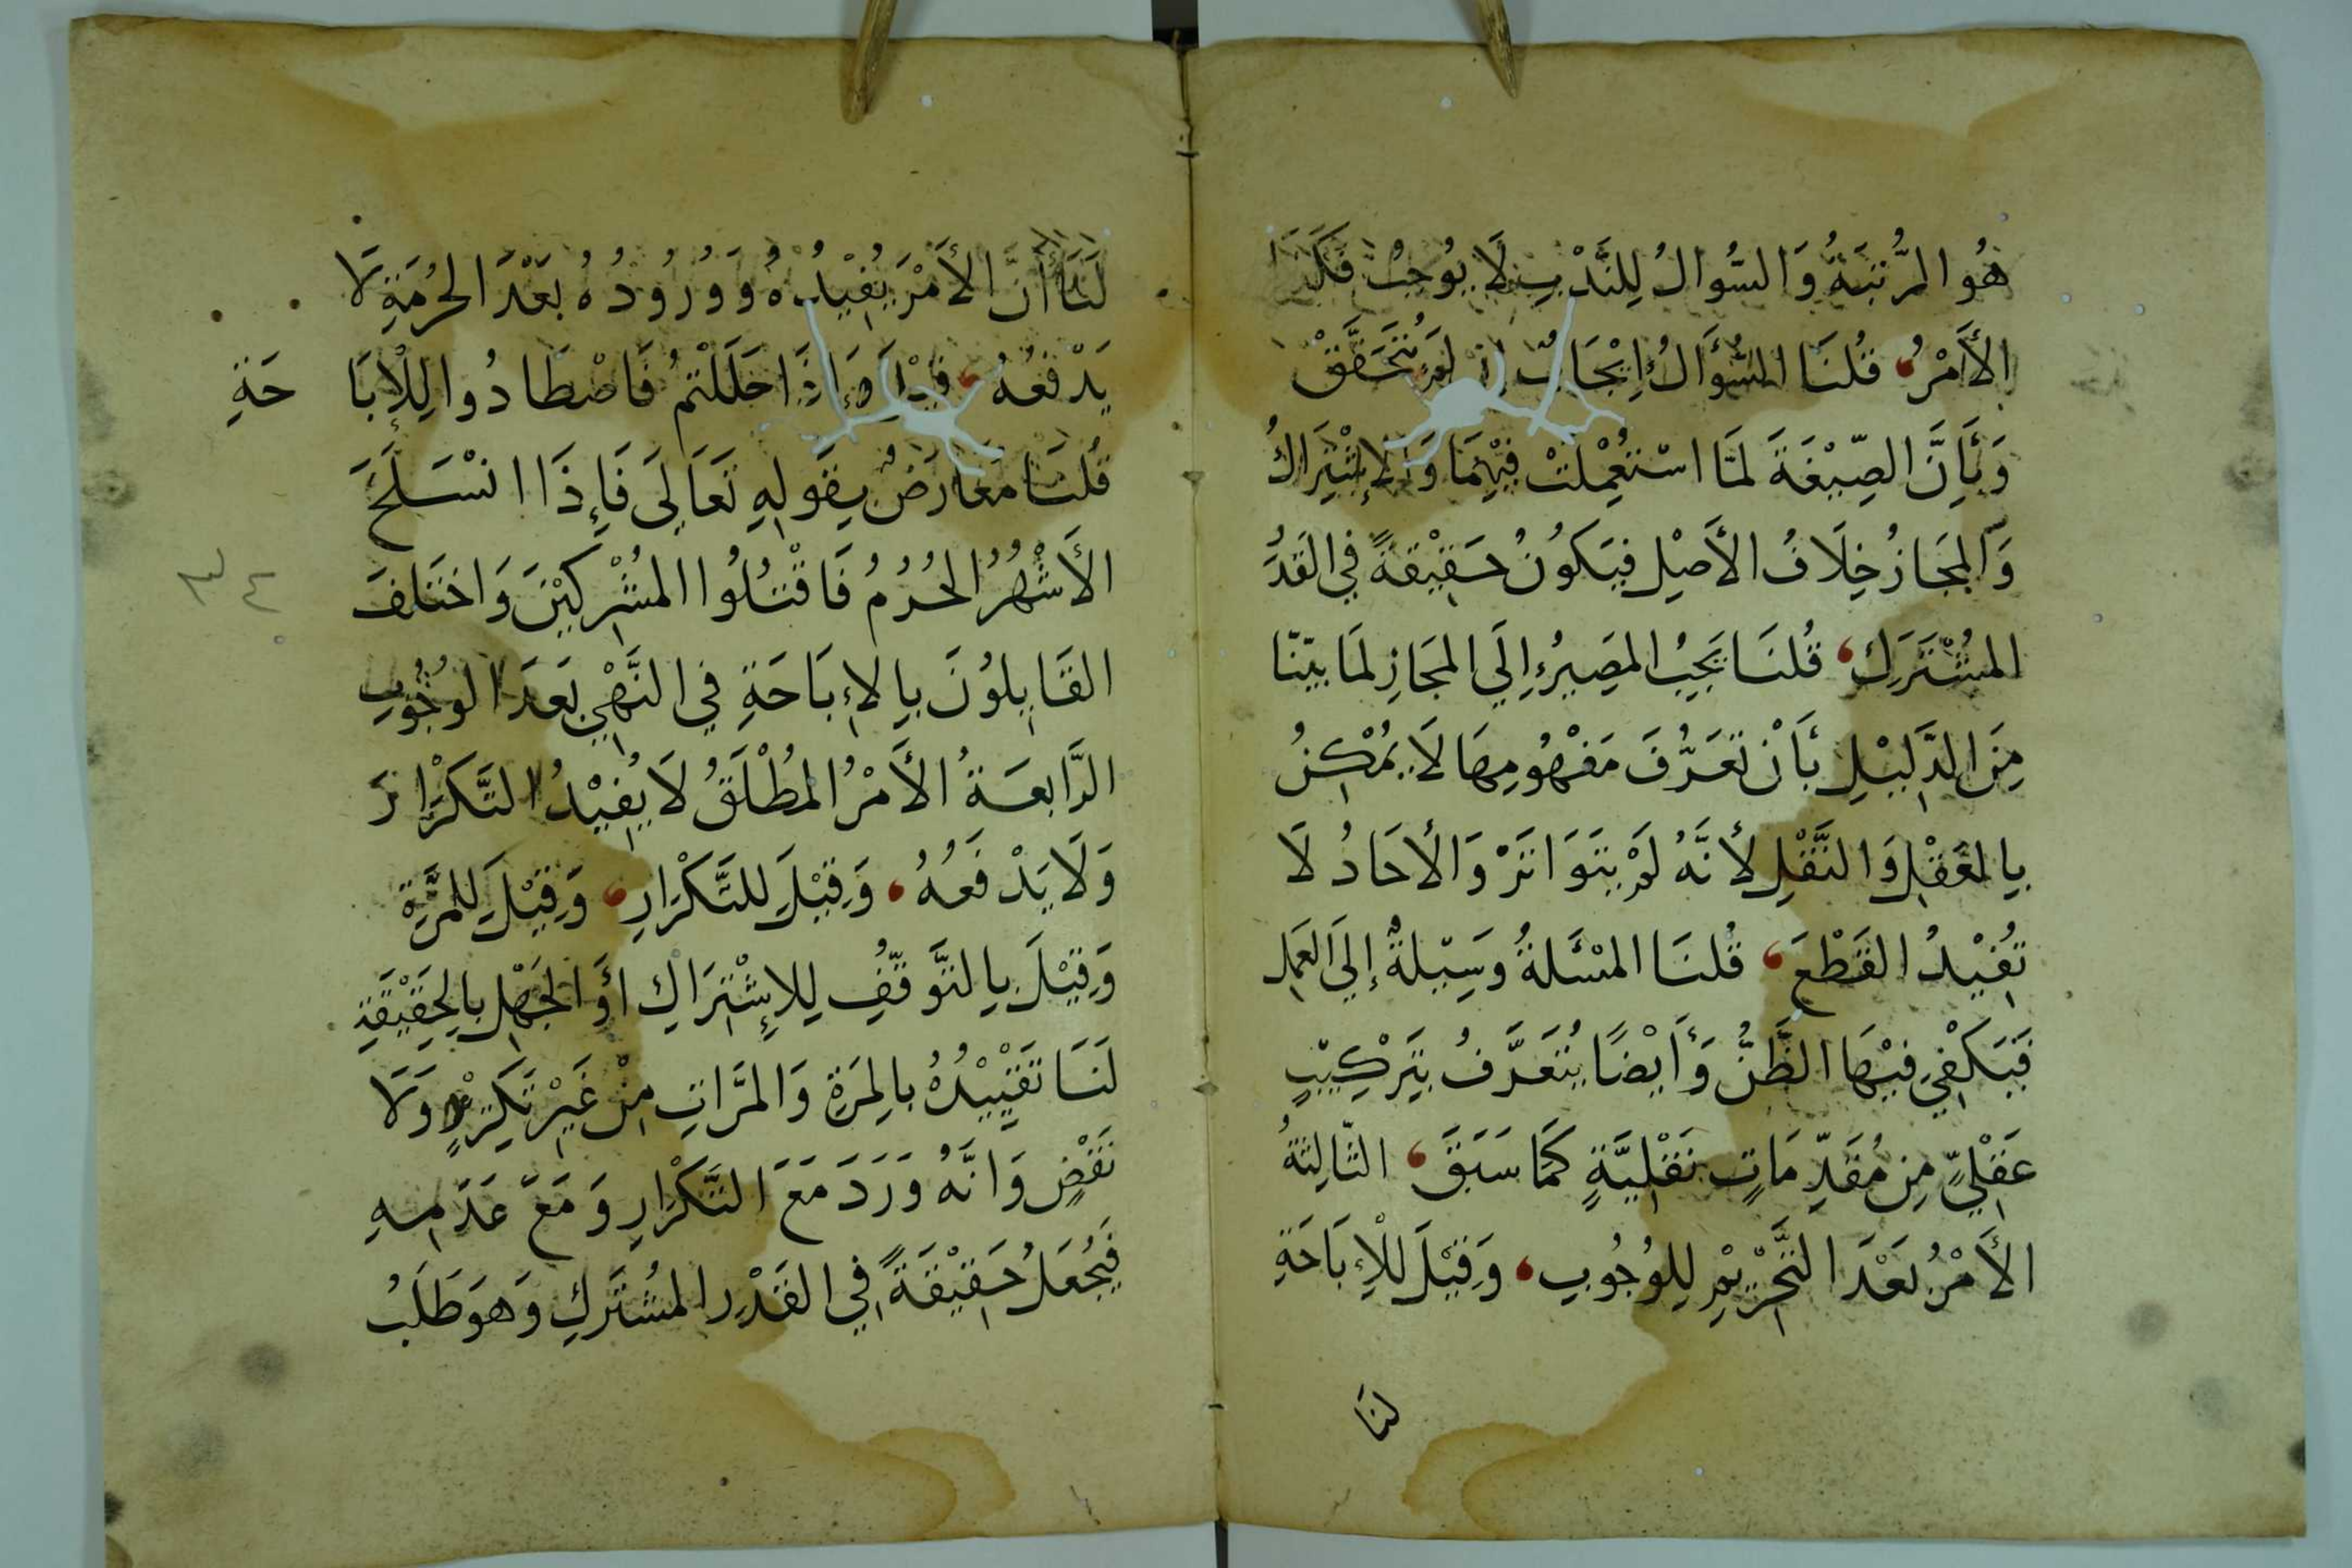 هُوَ الرُّتْبَةُ وَالسُّوالُ لِلنَّدْبِ لَا يُوجِبُ فَكَذَا
الأَمْرُ، قُلْنَا السُّؤَالُ إِيْجَابٌ إِنْ لَمْ يَتَحَقَّقْ
وَبِأَنَّ الصِّيْغَةَ لَمَّا اسْتُعْمِلَتْ فِيْهِمَا وَالإِشْتِرَاكُ
وَالمَجَازُ خِلَافُ الأَصْلِ فَيَكُونُ حَقِيْقَةً فِي القَدْرِ
المُشْتَرَكِ، قُلْنَا يَجِبُ المَصِيرُ إِلَي المَجَازِ لِمَا بَيَّنَّا
مِنَ الدَّلِيْلِ بِأَنْ تَعَرُّفَ مَفْهُومِهَا لَا يُمْكِنُ
بِالعَقْلِ وَالنَّقْلِ لأَنَّهُ لَمْ يَتَوَاتَرْ وَالأَحَادُ لَا
تُفِيْدُ القَطْعَ، قُلْنَا المَسْئَلةُ وَسِيْلةٌ إِلَي العَمَلِ
فَيَكْفِي فِيْهَا الظَّنُّ وَأَيْضًا يُتَعَرَّفُ بِتَرْكِيْبٍ
عَقْلِيٍّ مِن مُقَدِّمَاتٍ نَقْلِيَّةٍ كَمَا سَبَقَ، الثَّالِثَةُ
الأَمْرُ بَعْدَ التَّحْرِيْمِ لِلوُجُوبِ، وَقِيْلَ لِلْإِبَاحَةِ
لنَا
لَنَا أَنَّ الأَمْرَ يُفِيْدُهُ وَوُرُودُهُ بَعْدَ الحُرْمَةِ لَا
يَدْفَعُهُ، قِيْلَ وَإِذَا حَلَلْتُمْ فَاصْطَادُوا لِلْإِبَاحَةِ
قُلْنَا مُعَارَضٌ بِقَولِهِ تَعَالَي فَإِذَا انْسَلَخَ
الأَشْهُرُ الحُرُمُ فَاقْتُلُوا المُشْرِكِيْنَ وَاخْتَلَفَ
القَايِلُونَ بِالإِبَاحَةِ فِي النَّهْيِ بَعْدَ الوُجُوبِ
الرَّابِعَةُ الأَمْرُ المُطْلَقُ لَا يُفِيْدُ التَّكْرَارَ
وَلَا يَدْفَعُهُ، وَقِيْلَ لِلتَّكْرَارِ، وَقِيْلَ لِلمَرَّةِ
وَقِيْلَ بِالتَّوَقُّفِ لِلإِشْتِرَاكِ أَوِ الجَهْلِ بِالحَقِيْقَةِ
لَنَا تَقْيِيْدُهُ بِالمَرَّةِ وَالمَرَّاتِ مِنْ غَيْرِ تَكْرِيْرٍ وَلَا
نَقْضٍ وَانَّهُ وَرَدَ مَعَ التَّكْرَارِ وَمَعَ عَدَمِهِ
فَيُجْعَلُ حَقِيْقَةً فِي القَدْرِ المُشْتَرَكِ وَهوَ طَلَبُ